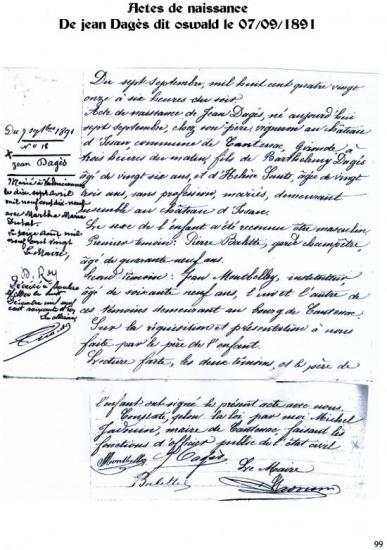 Actes de naissance
De jean Dagès dit oswald le 07/09/1891
Du 7 7bre 1891
N° 18
jean Dagès
Marié à
le dix sept avril
mil neuf cent
avec Marthe Marie
Le seize août mil
neuf cent vingt
Le Maire,
D. Roy
Décédé à
le huit
Décembre mil neuf
cent soixante
Du sept septembre, mil huit cent quatre vingt
onze à six heures du soir.
Acte de naissance de Jean Dagès, né aujourd'hui
sept septembre, chez son père, vigneron au château
d'Issan commune de Cantenac, Gironde à
trois heures du matin, fils de Barthélemy Dagès
âgé de vingt six ans, et d'Hélène âgée de vingt
trois ans, sans profession, mariés, demeurant
ensemble au château d'Issan.
Le sexe de l'enfant a été reconnu être masculin.
Premier témoin: Pierre garde champêtre,
âgé de quarante neuf ans.
Second témoin: Jean instituteur,
âgé de soixante neuf ans, l'un et l'autre de
ces témoins demeurant au bourg de Cantenac.
Sur la réquisition et présentation à nous
faite par le père de l'enfant.
Lecture faite, les deux témoins, et le père de
l'enfant ont signé le présent acte avec nous.
Constaté, selon la loi, par moi Michel
maire de Cantenac faisant les
fonctions d'officier public de l'état civil
Dagès
Le Maire
99